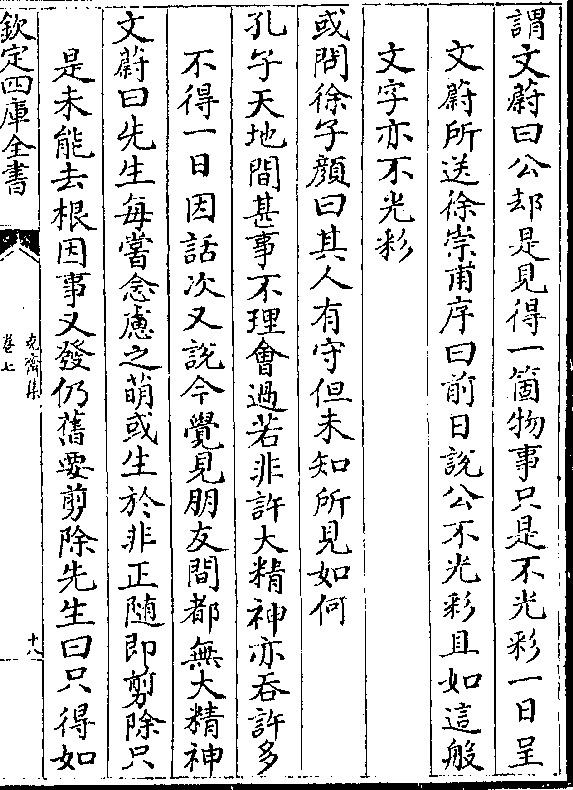 謂文蔚曰公却是見得一箇物事只是不光彩一日呈
文蔚所送徐崇甫序曰前日說公不光彩且如這般
文字亦不光彩
或問徐子顔曰其人有守但未知所見如何
孔子天地間甚事不理會過若非許大精神亦吞許多
不得一日因話次又說今覺見朋友間都無大精神
文蔚曰先生每嘗念慮之萌或生於非正隨即剪除只
是未能去根因事又發仍舊要剪除先生曰只得如
欽定四庫全書
克齋集
卷七
十八